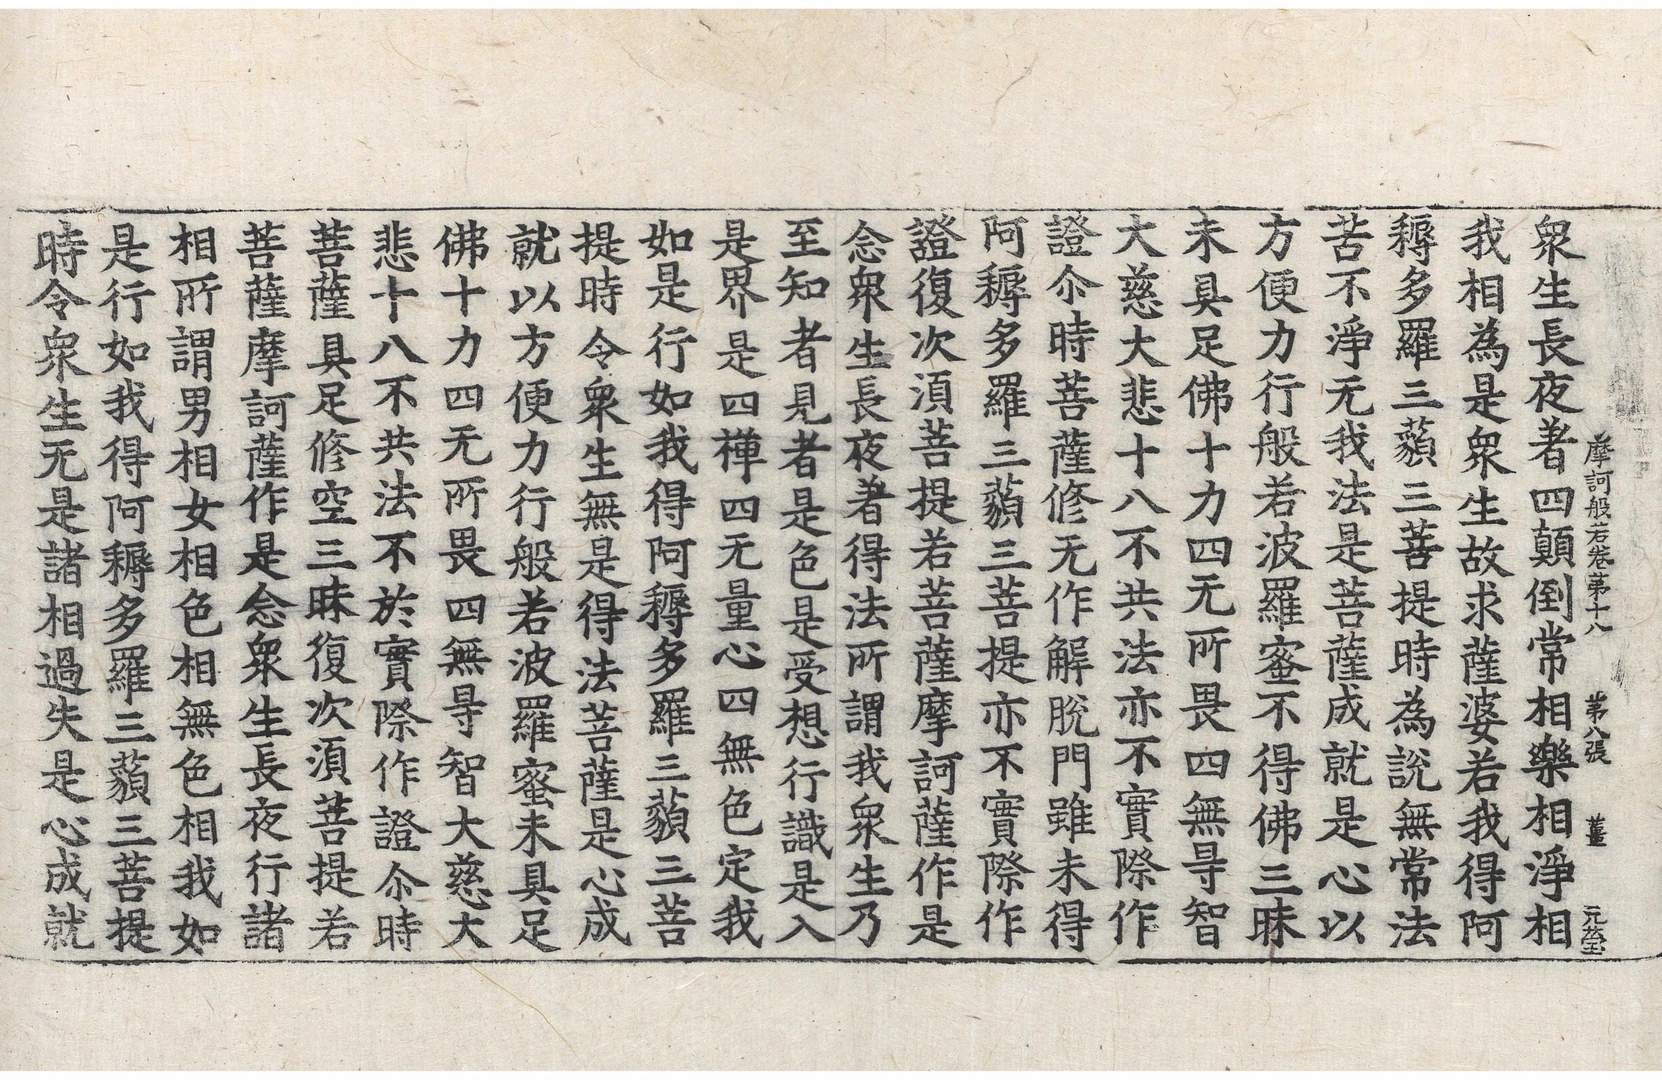 摩訶般若卷第十八　第八張　薑　元瑩
衆生長夜著四顛倒常相樂相淨相
我相為是衆生故求薩婆若我得阿
耨多羅三藐三菩提時為說無常法
苦不淨无我法是菩薩成就是心以
方便力行般若波羅蜜不得佛三昧
未具足佛十力四无所畏四無㝵智
大慈大悲十八不共法亦不實際作
證尒時菩薩修无作解脫門雖未得
阿耨多羅三藐三菩提亦不實際作
證復次湏菩提若菩薩摩訶薩作是
念衆生長夜著得法所謂我衆生乃
至知者見者是色是受想行識是入
是界是四禪四无量心四無色定我
如是行如我得阿耨多羅三藐三菩
提時令衆生無是得法菩薩是心成
就以方便力行般若波羅蜜未具足
佛十力四无所畏四無㝵智大慈大
悲十八不共法不於實際作證尒時
菩薩具足修空三昧復次湏菩提若
菩薩摩訶薩作是念衆生長夜行諸
相所謂男相女相色相無色相我如
是行如我得阿耨多羅三藐三菩提
時令衆生无是諸相過失是心成就